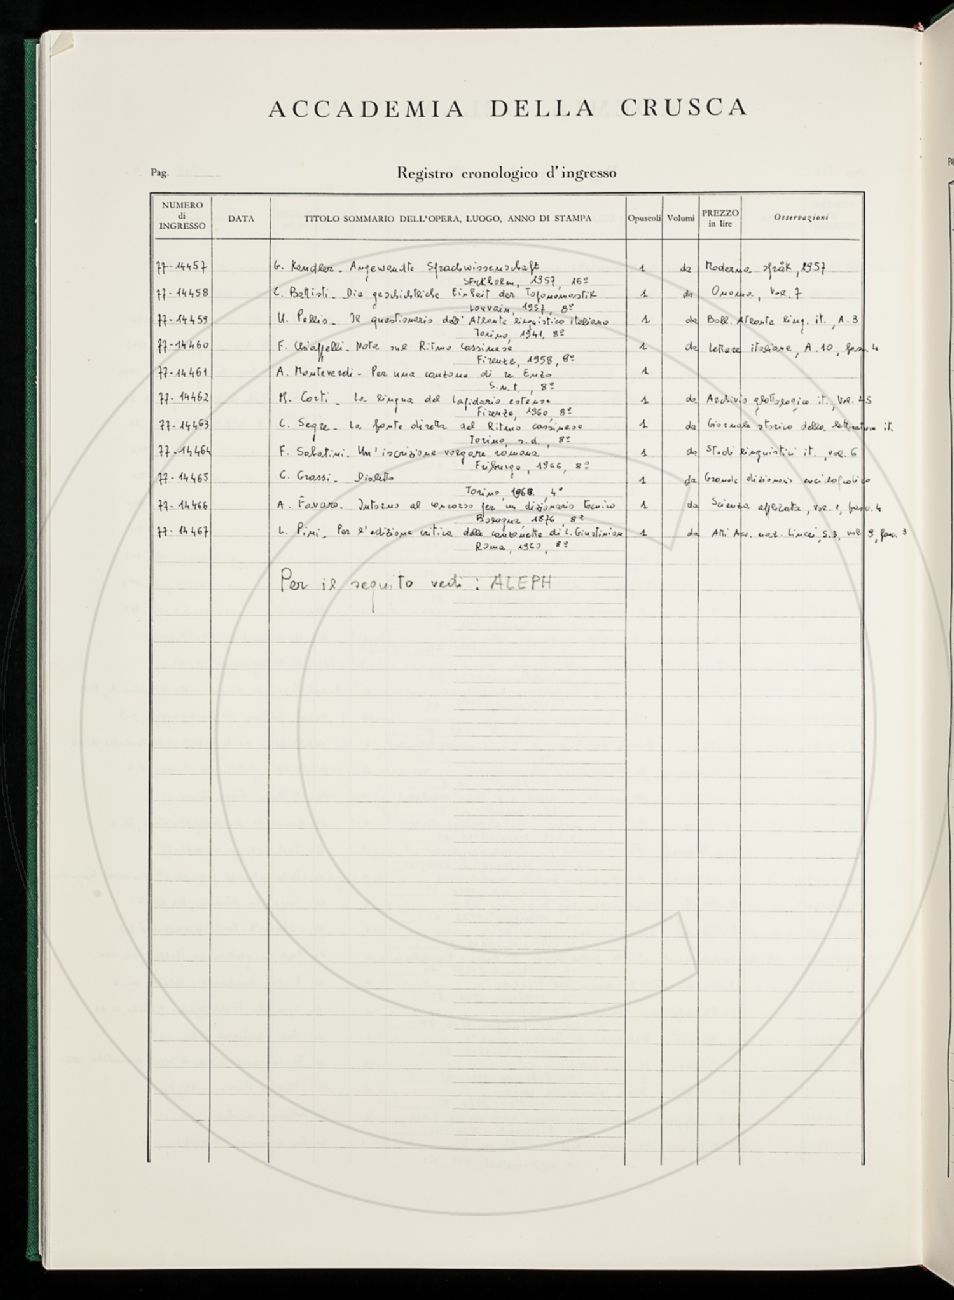 ACCADEMIA DELLA CRUSCA
Pag. Registro cronologico d'ingresso
NUMERO di INGRESSO DATA TITOLO SOMMARIO DELL'OPERA, LUOGO, ANNO DI STAMPA Opuscoli Volumi PREZZO in lire Osservazioni
77-14457 G. Kandler - Angewandte Sprachwissenschaft 1 da Moderna språk, 1957
Stokholm, 1957, 16°
77-14458 C. Battisti - Die geschichtliche Einheit der Toponomastik 1 da Onoma, vol. 7
Louvain, 1957, 8°
77-14459 U. Pellis - Il questionario dell'Atlante linguistico italiano 1 da Boll. Atlante ling. it., A. 3
Torino, 1941, 8°
77-14460 F. Chiappelli - Note sul Ritmo cassinese 1 da Lettere italiane, A. 10, fasc. 4
Firenze, 1958, 8°
77-14461 A. Monteverdi - Per una canzone di re Enzo 1
S.n.t., 8°
77-14462 M. Corti - La lingua del lapidario estense 1 da Archivio glottologico it., vol. 45
Firenze, 1960, 8°
77-14463 C. Segre - La fonte diretta del Ritmo cassinese 1 da Giornale storico della letteratura it.
Torino, s.d., 8°
77-14464 F. Sabatini. Un'iscrizione volgare romana 1 da Studi linguistici it., vol. 6
Friburgo, 1966, 8°
77-14465 C. Grassi - Dialetto 1 da Grande dizionario enciclopedico
Torino, 1968, 4°
77-14466 A. Favaro. Intorno al concorso per un dizionario tecnico 1 da Scienza applicata, vol. 1, fasc. 4
Bologna, 1876, 8°
77-14467 L. Pini - Per l'edizione critica delle canzonette di L. Giustinian 1 da Atti Acc. naz. Lincei, S. 8, vol. 9, fasc. 3
Roma, 1960, 8°
Per il seguito vedi : ALEPH